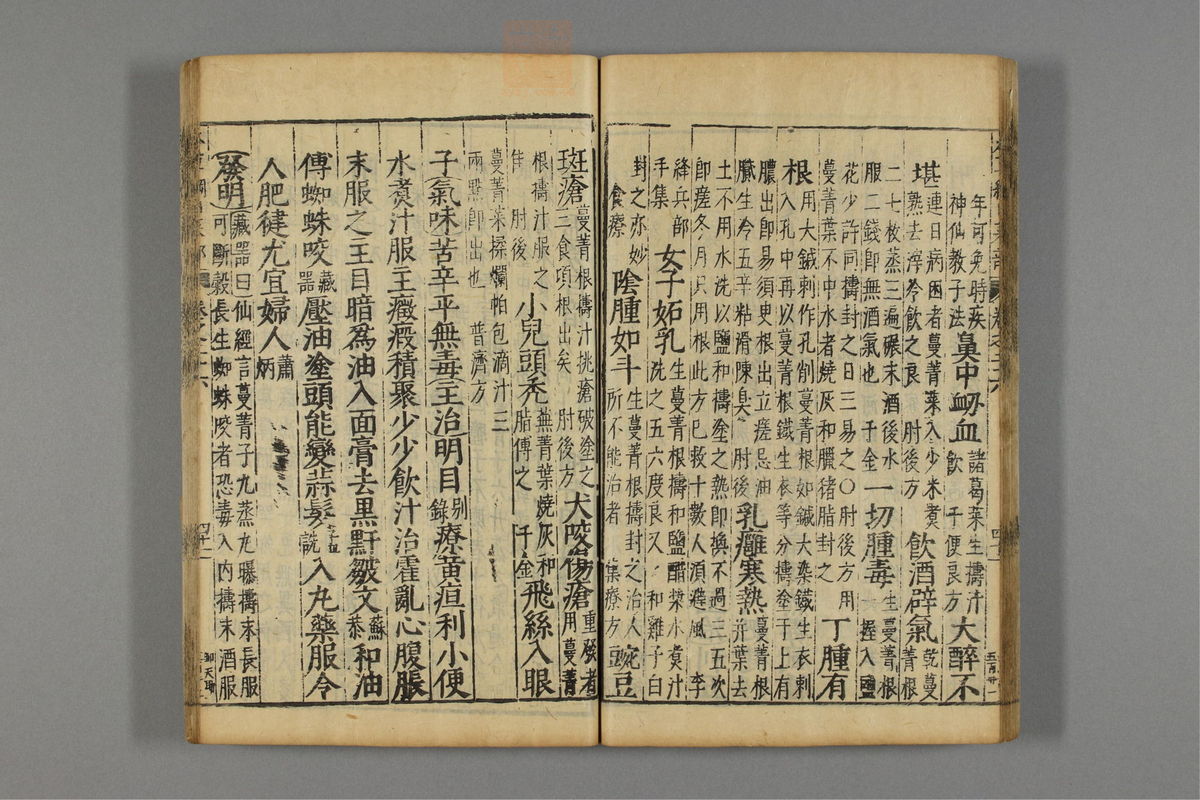 年可免時疾神仙教子法鼻中衄血諸葛菜生擣汁飲十便良方大醉不
堪連日病困者蔓菁菜入少米煮熟去滓冷飲之良肘後方飲酒辟氣乾蔓菁根
二七枚蒸三遍碾末酒後水服二錢即無酒氣也千金一切腫毒生蔓菁根一握入鹽
花少許同擣封之日三易之○肘後方用蔓菁葉不中水者燒灰和臘猪脂封之丁腫有
根用大鍼刺作孔削蔓菁根如鍼大染鐵生衣刺入孔中再以蔓菁根鐵生衣等分擣塗于上有
膿出即易須臾根出立瘥忌油膩生冷五辛粘滑陳臭肘後乳癰寒熱蔓菁根并葉去
土不用水洗以鹽和擣塗之熱即換不過三五次即瘥冬月只用根此方已救十數人須避風李
絳兵部手集女子妬乳生蔓菁根擣和鹽醋漿水煮汁洗之五六度良又和雞子白
封之亦妙食療陰腫如斗生蔓菁根擣封之治人所不能治者集療方豌豆
斑瘡蔓菁根擣汁挑瘡破塗之三食頃根出矣肘後方犬咬傷瘡重發者用蔓菁
根擣汁服之佳肘後小兒頭禿蕪菁葉燒灰和脂傅之千金飛絲入眼
蔓菁菜揉爛帕包滴汁三兩點即出也普濟方
子氣味苦辛平無毒主治明目別錄療黃疸利小便
水煮汁服主癥瘕積聚少少飲汁治霍亂心腹脹
末服之主目暗為油入面膏去黑䵟皺文蘇恭和油
傅蜘蛛咬藏器壓油塗頭能變蒜髮孟詵入丸藥服令
人肥健尤宜婦人蕭炳
發明藏器曰仙經言蔓菁子九蒸九曝擣末長服可斷穀長生蜘蛛咬者恐毒入內擣末酒服
四十二